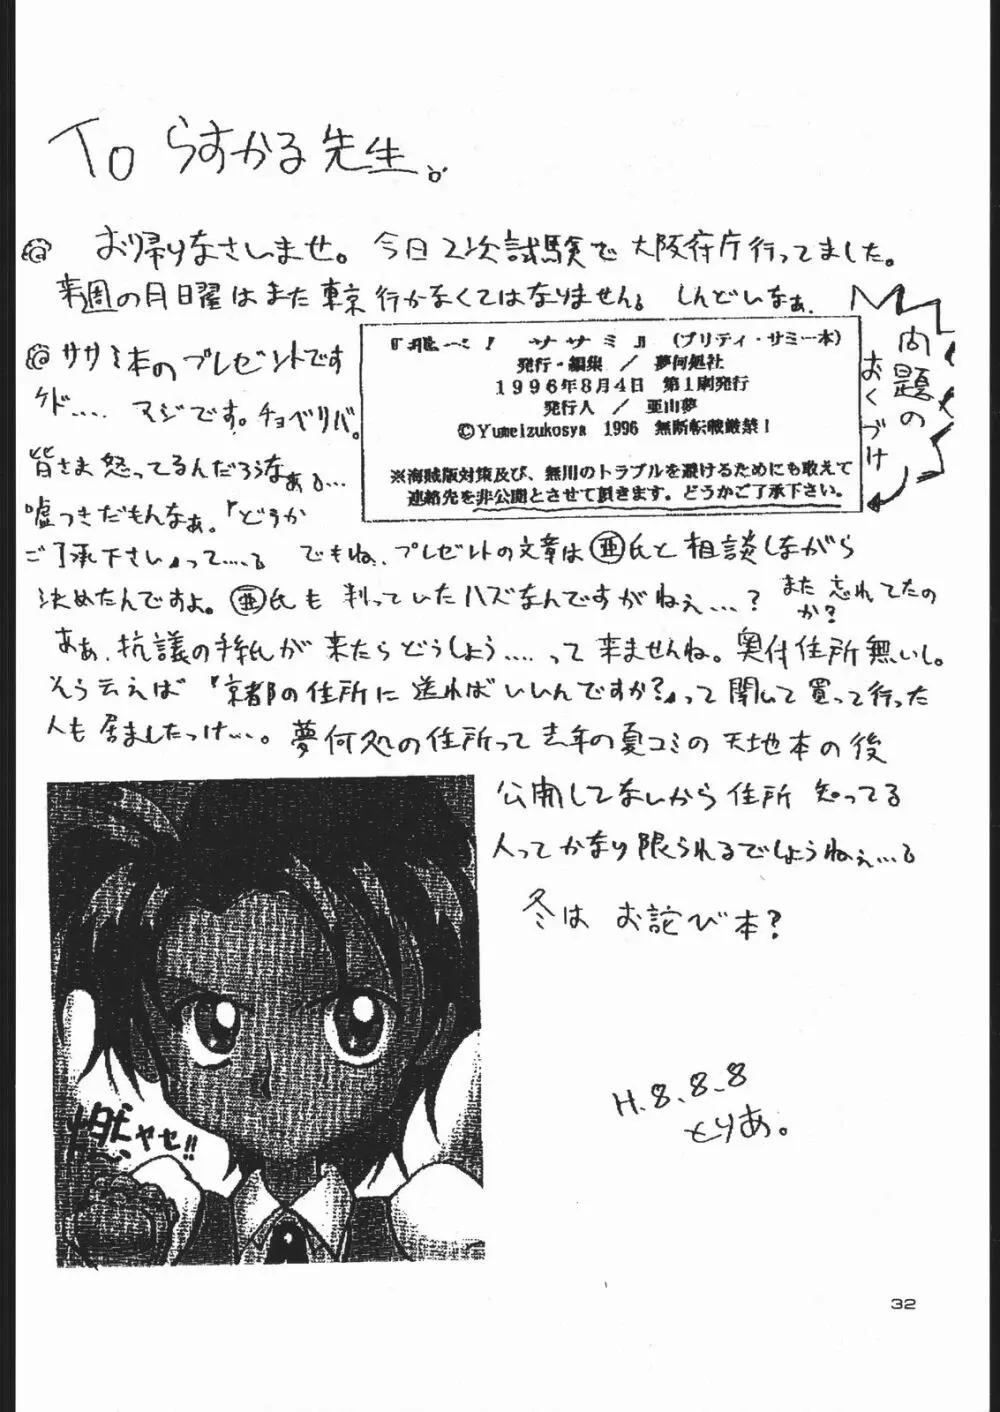 To らすかる先生。
@ お帰りなさいませ。今日2次試験で大阪府庁行ってました。
来週の月日曜はまた東京行かなくてはなりません。しんどいなぁ.
@ ササミ本のプレゼントです
ケド.... マジです。チョベリバ。
皆さま怒ってるんだろうなぁ。...
嘘つきだもんなぁ。「どうか
ご了承下さい」って....。でもね、プレゼントの文章は亜氏と相談しながら
決めたんですよ。亜氏も判っていたハズなんですがねぇ...? また忘れてたの
か?
ああ、抗議の手紙が来たらどうしよう....って来ませんね。奥付住所無いし。
そう云えば『京都の住所に送ればいいんですか?』って聞いて買って行った
人も居ましたっけ...。夢何処の住所って去年の夏コミの天地本の後
公開してないから住所知ってる
人ってかなり限られるでしょうねぇ...。
冬はお詫び本?
問題の
おくづけ
『飛べ! ササミ』(プリティ・サミー本)
発行・編集 / 夢何処社
1996年8月4日 第1刷発行
発行人 / 亜山夢
©Yumeizukosya 1996 無断転載厳禁!
※海賊版対策及び、無用のトラブルを避けるためにも敢えて
連絡先を非公開とさせて頂きます。どうかご了承下さい。
燃ヤセ!!
H.8.8.8
とりあ。
32